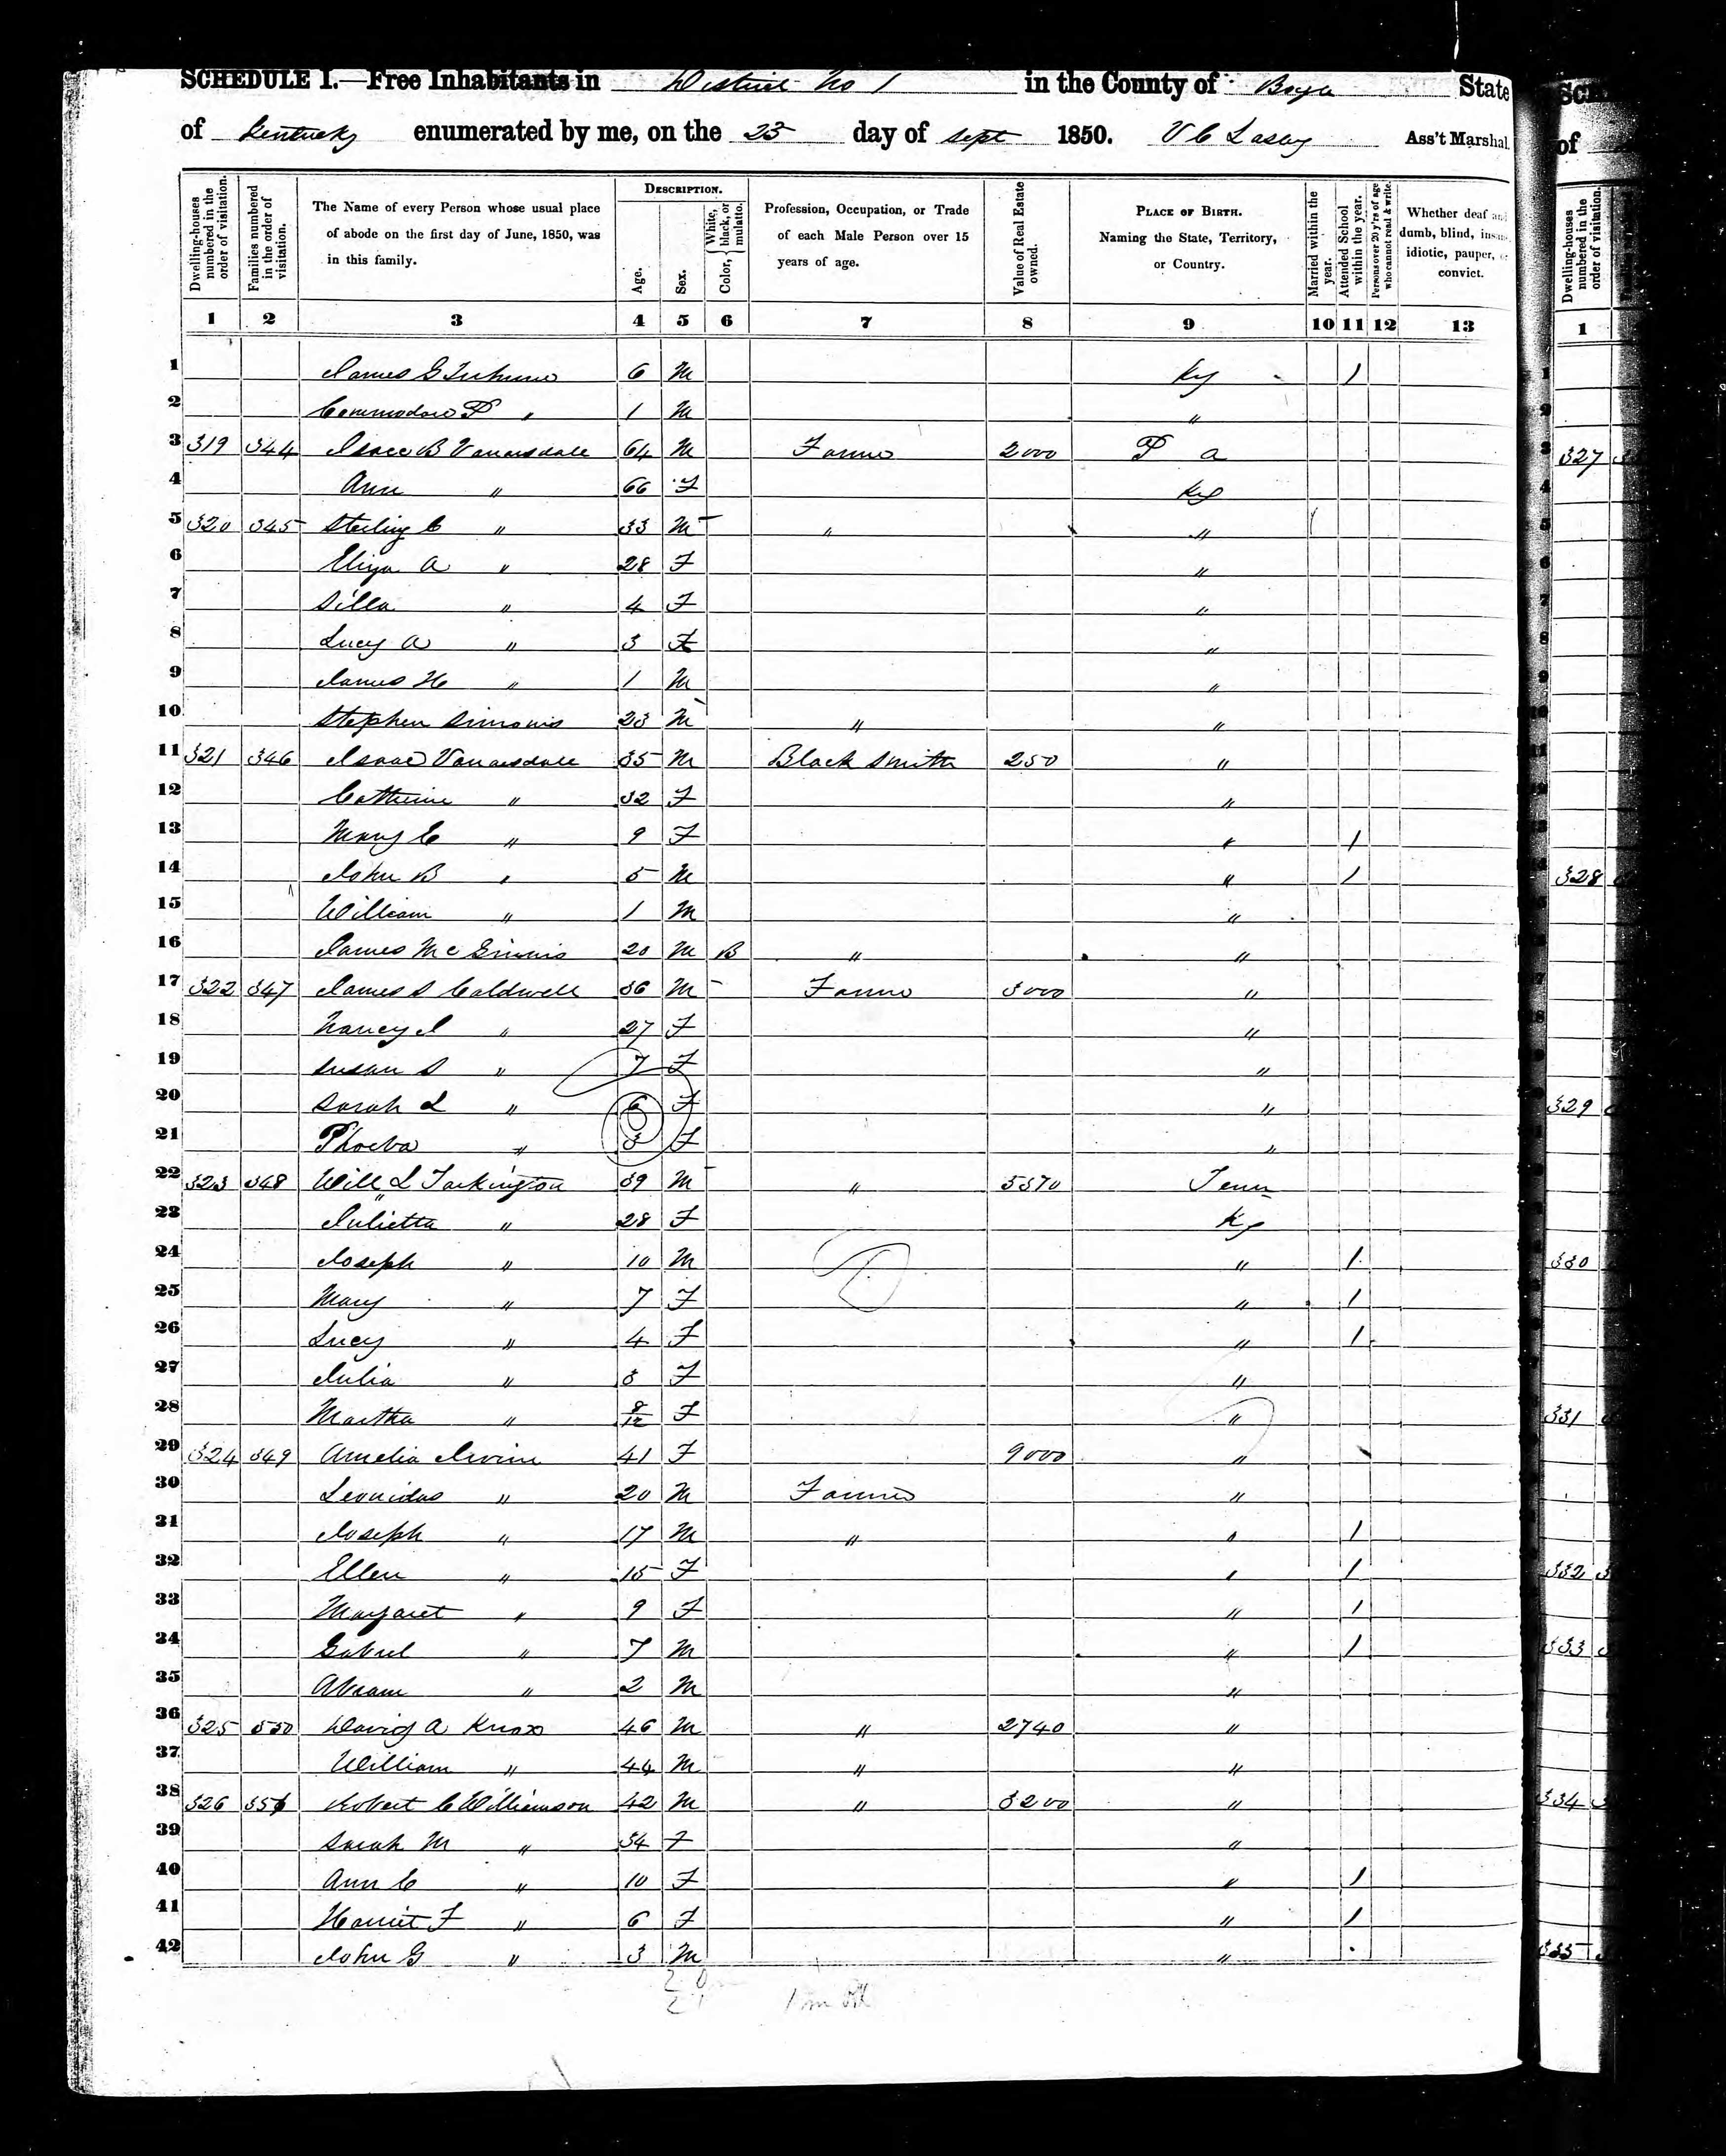 SCHEDULE I.—Free Inhabitants in District No 1 in the County of Boyle State
of Kentucky enumerated by me, on the 25 day of Sept 1850. Ass't Marshal.
Dwelling-houses numbered in the order of visitation.
Families numbered in the order of visitation.
The Name of every Person whose usual place of abode on the first day of June, 1850, was in this family.
DESCRIPTION.
Age.
Sex.
Color, White, black, or mulatto.
Profession, Occupation, or Trade of each Male Person over 15 years of age.
Value of Real Estate owned.
PLACE OF BIRTH. Naming the State, Territory, or Country.
Married within the year.
Attended School within the year.
Persons over 20 y'rs of age who cannot read & write.
Whether deaf and dumb, blind, insane, idiotic, pauper, or convict.
1 2 3 4 5 6 7 8 9 10 11 12 13
1 James G 6 M Ky 1
2 Commodore P " 1 M "
3 319 344 Isaac B Vanarsdale 64 M Farmer 2000 P a
4 Ann " 66 F Ky
5 320 345 Sterling C " 33 M " "
6 Eliza A " 28 F "
7 Silla " 4 F "
8 Lucy A " 3 F "
9 James H " 1 M "
10 Stephen Simonis 23 M " "
11 321 346 Isaac Vanarsdale 35 M Black Smith 250 "
12 Catherine " 32 F "
13 Mary C " 9 F " 1
14 John B " 5 M " 1
15 William " 1 M "
16 James McGinnis 20 M B " "
17 322 347 James S Caldwell 36 M Farmer 3000 "
18 Nancy J " 27 F "
19 Susan S " 7 F "
20 Sarah L " 6 F "
21 Phoeba " 3 F "
22 323 348 Will L Tarkington 39 M " 5370 Tenn
23 Julietta " 28 F Ky
24 Joseph " 10 M " 1
25 Mary " 7 F " 1
26 Lucy " 4 F " 1
27 Julia " 3 F "
28 Martha " 8/12 F "
29 324 349 Amelia Irvine 41 F 9000 "
30 Leonidas " 20 M Farmer "
31 Joseph " 17 M " " 1
32 Ellen " 15 F " 1
33 Margaret " 9 F " 1
34 Gabriel " 7 M " 1
35 Abram " 2 M "
36 325 350 David A Knox 46 M " 2740 "
37 William " 44 M " "
38 326 351 Robert C Williamson 42 M " 3200 "
39 Sarah M " 34 F "
40 Ann C " 10 F " 1
41 Harriet F " 6 F " 1
42 John G " 3 M "
SCH
of
Dwelling-houses numbered in the order of visitation.
1
327
328
329
330
331
332
333
334
335